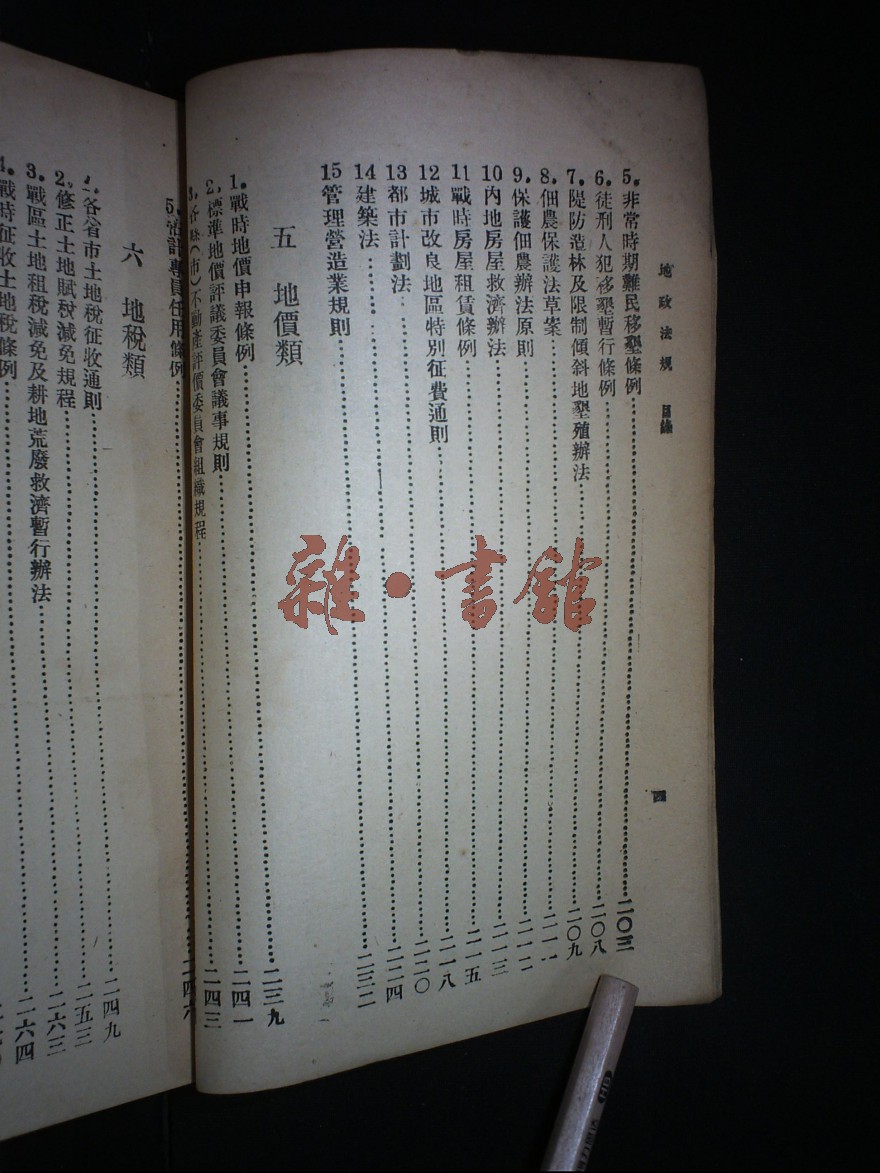 地政法規 目錄
四
5.非常時期難民移墾條例……二〇三
6.徒刑人犯移墾暫行條例……二〇八
7.隄防造林及限制傾斜地墾殖辦法……二〇九
8.佃農保護法草案……二一一
9.保護佃農辦法原則……二一二
10內地房屋救濟辦法……二一三
11戰時房屋租賃條例……二一五
12城市改良地區特別征費通則……二一八
13都市計劃法……二二〇
14建築法……二二四
15管理營造業規則……二三二
五 地價類
1.戰時地價申報條例……二三九
2.標準地價評議委員會議事規則……二四一
3.各縣(市)不動產評價委員會組織規程……二四三
5.估計專員任用條例……二四六
六 地稅類
1.各省市土地稅征收通則……二四九
2.修正土地賦稅減免規程……二五三
3.戰區土地租稅減免及耕地荒廢救濟暫行辦法……二六三
4.戰時征收土地稅條例……二六四
雜·書館